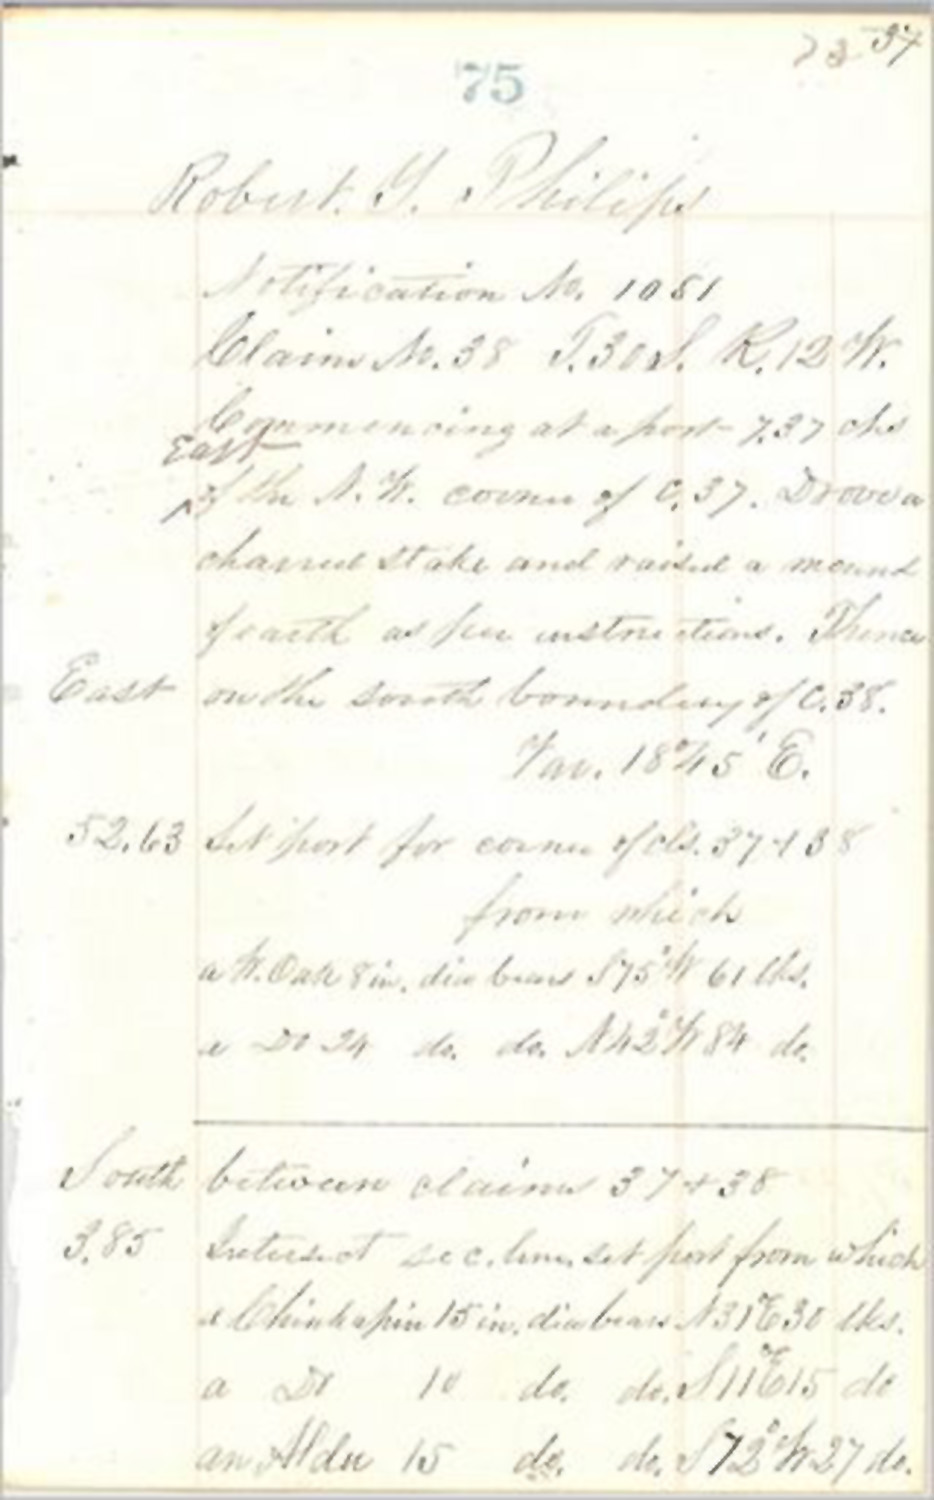 37
75
Robert. G. Philips
Notification No. 1081
Claim No. 38 T. 30 S. R. 12 W.
Commencing at a post 7.37 chs
East
of the N.W. corner of C. 37. Drove a
charred stake and raised a mound
of earth as per instructions. Thence
East on the south boundary of C. 38.
Var. 18° 45' E.
52.63 Set post for corner of cls. 37 + 38
from which
a W. Oak 8 in. dia bears S 75° W 61 lks.
a Do 24 do. do. N 42° W 84 do.
South between claims 37 + 38
3.85 Intersect sec. line, set post from which
a Chinkapin 15 in. dia bears N 31° E 30 lks.
a Do 10 do. do. S 11° E 15 do
an Alder 15 do. do. S 72° W 27 do.